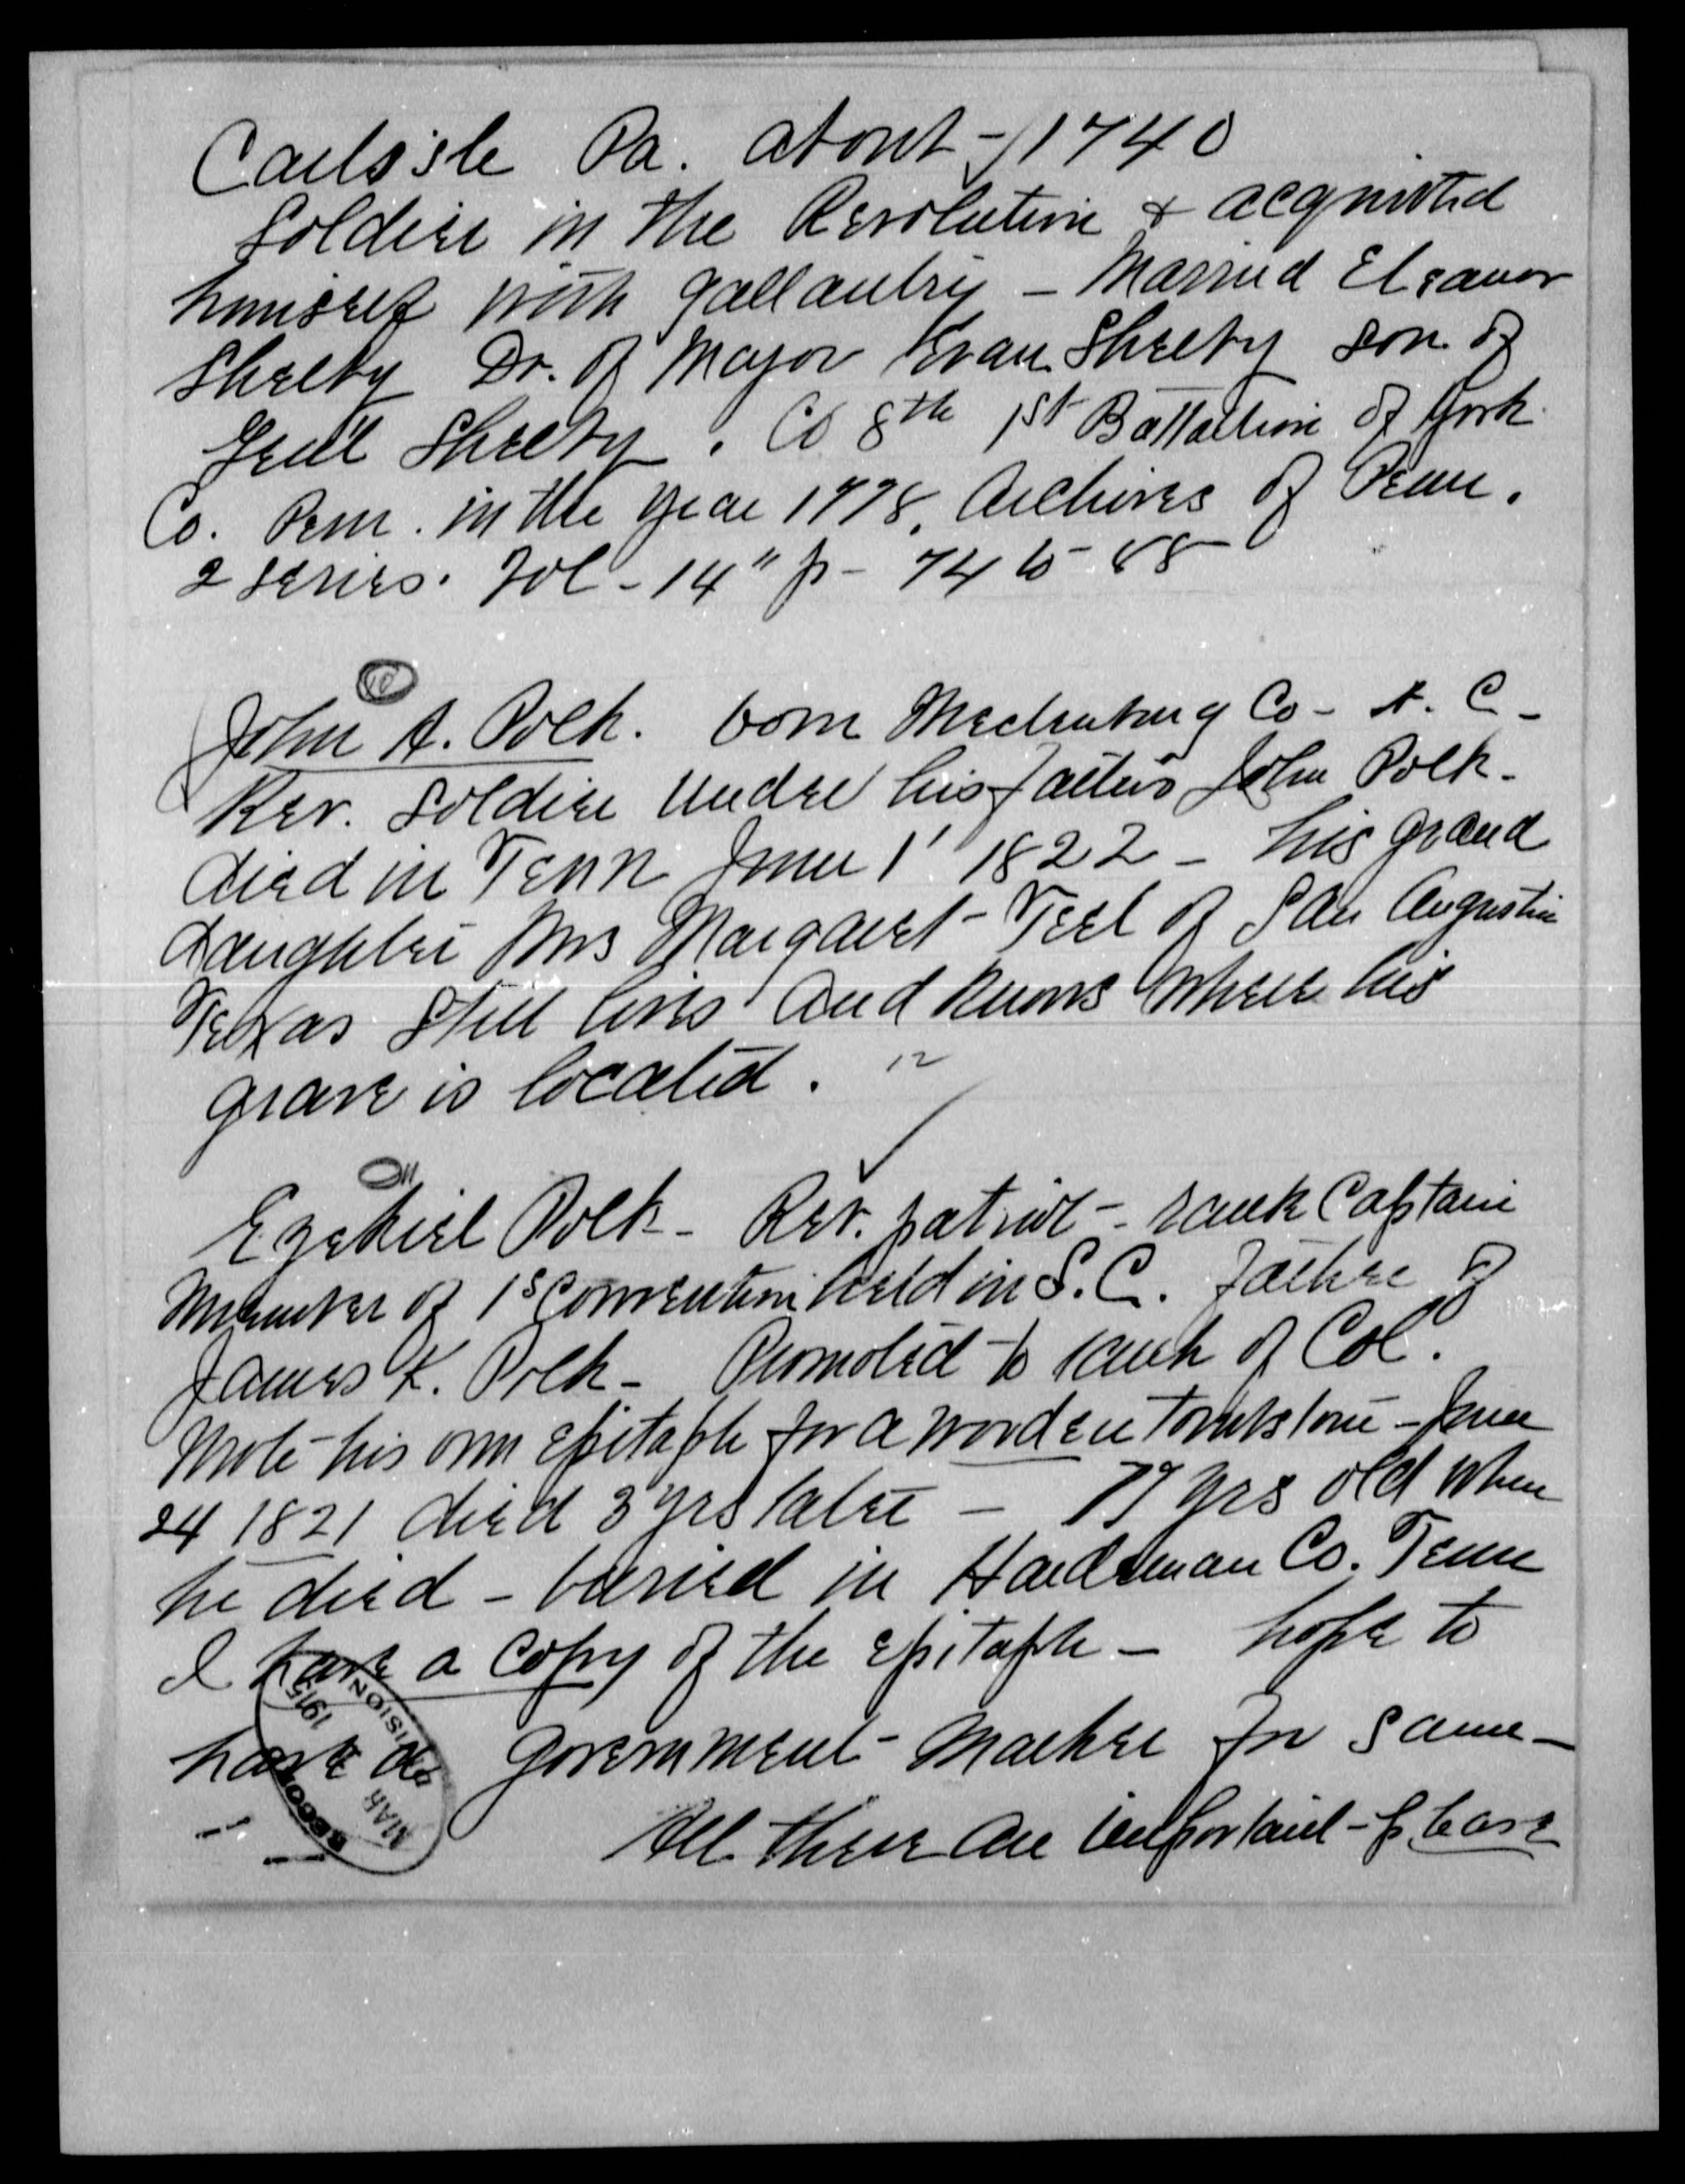 Carlsisle Pa. about - 1740
Soldier in the Revolution & acquitted
himself with gallantry - Married Eleanor
Shelby Dr. of Major Evan Shelby son of
Genl Shelby. Co 8th 1st Battallion of York
Co. Penn. in the year 1778. Archives of Penn.
2 series. Vol - 14" p - 74 to 88
10
John A. Polk. born Mecklenburg Co - N. C -
Rev. Soldier under his father John Polk -
died in Tenn June 1' 1822 - his grand
daughter Mrs Margaret Teel of San Augustine
Texas still lives and knows where his
grave is located. 12
11
Ezekiel Polk - Rev. patriot - rank Captain
Member of 1s Convention held in S. C. father of
James K. Polk - Promoted to rank of Col.
Wrote his own epitaph for a wooden tombstone - June
24 1821 died 3 yrs later - 77 yrs old when
he died - buried in Hardeman Co. Tenn
I have a copy of the epitaph - hope to
have a government marker for same -
All these are important - please
RECORD DIVISION
MAR 1915